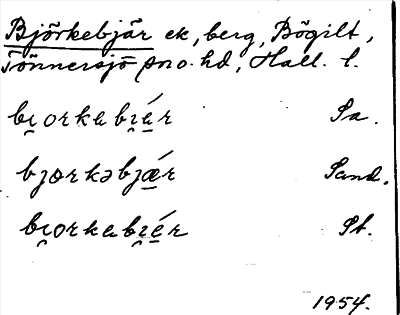 Björkebjär ek, berg, Bögilt,
Tönnersjö sn o. hd, Hall. l.
bı̯orkabı̯ǽr Sa.
bjorkəbjǽr Sand.
bı̯orkabı̯ér St.
1954.